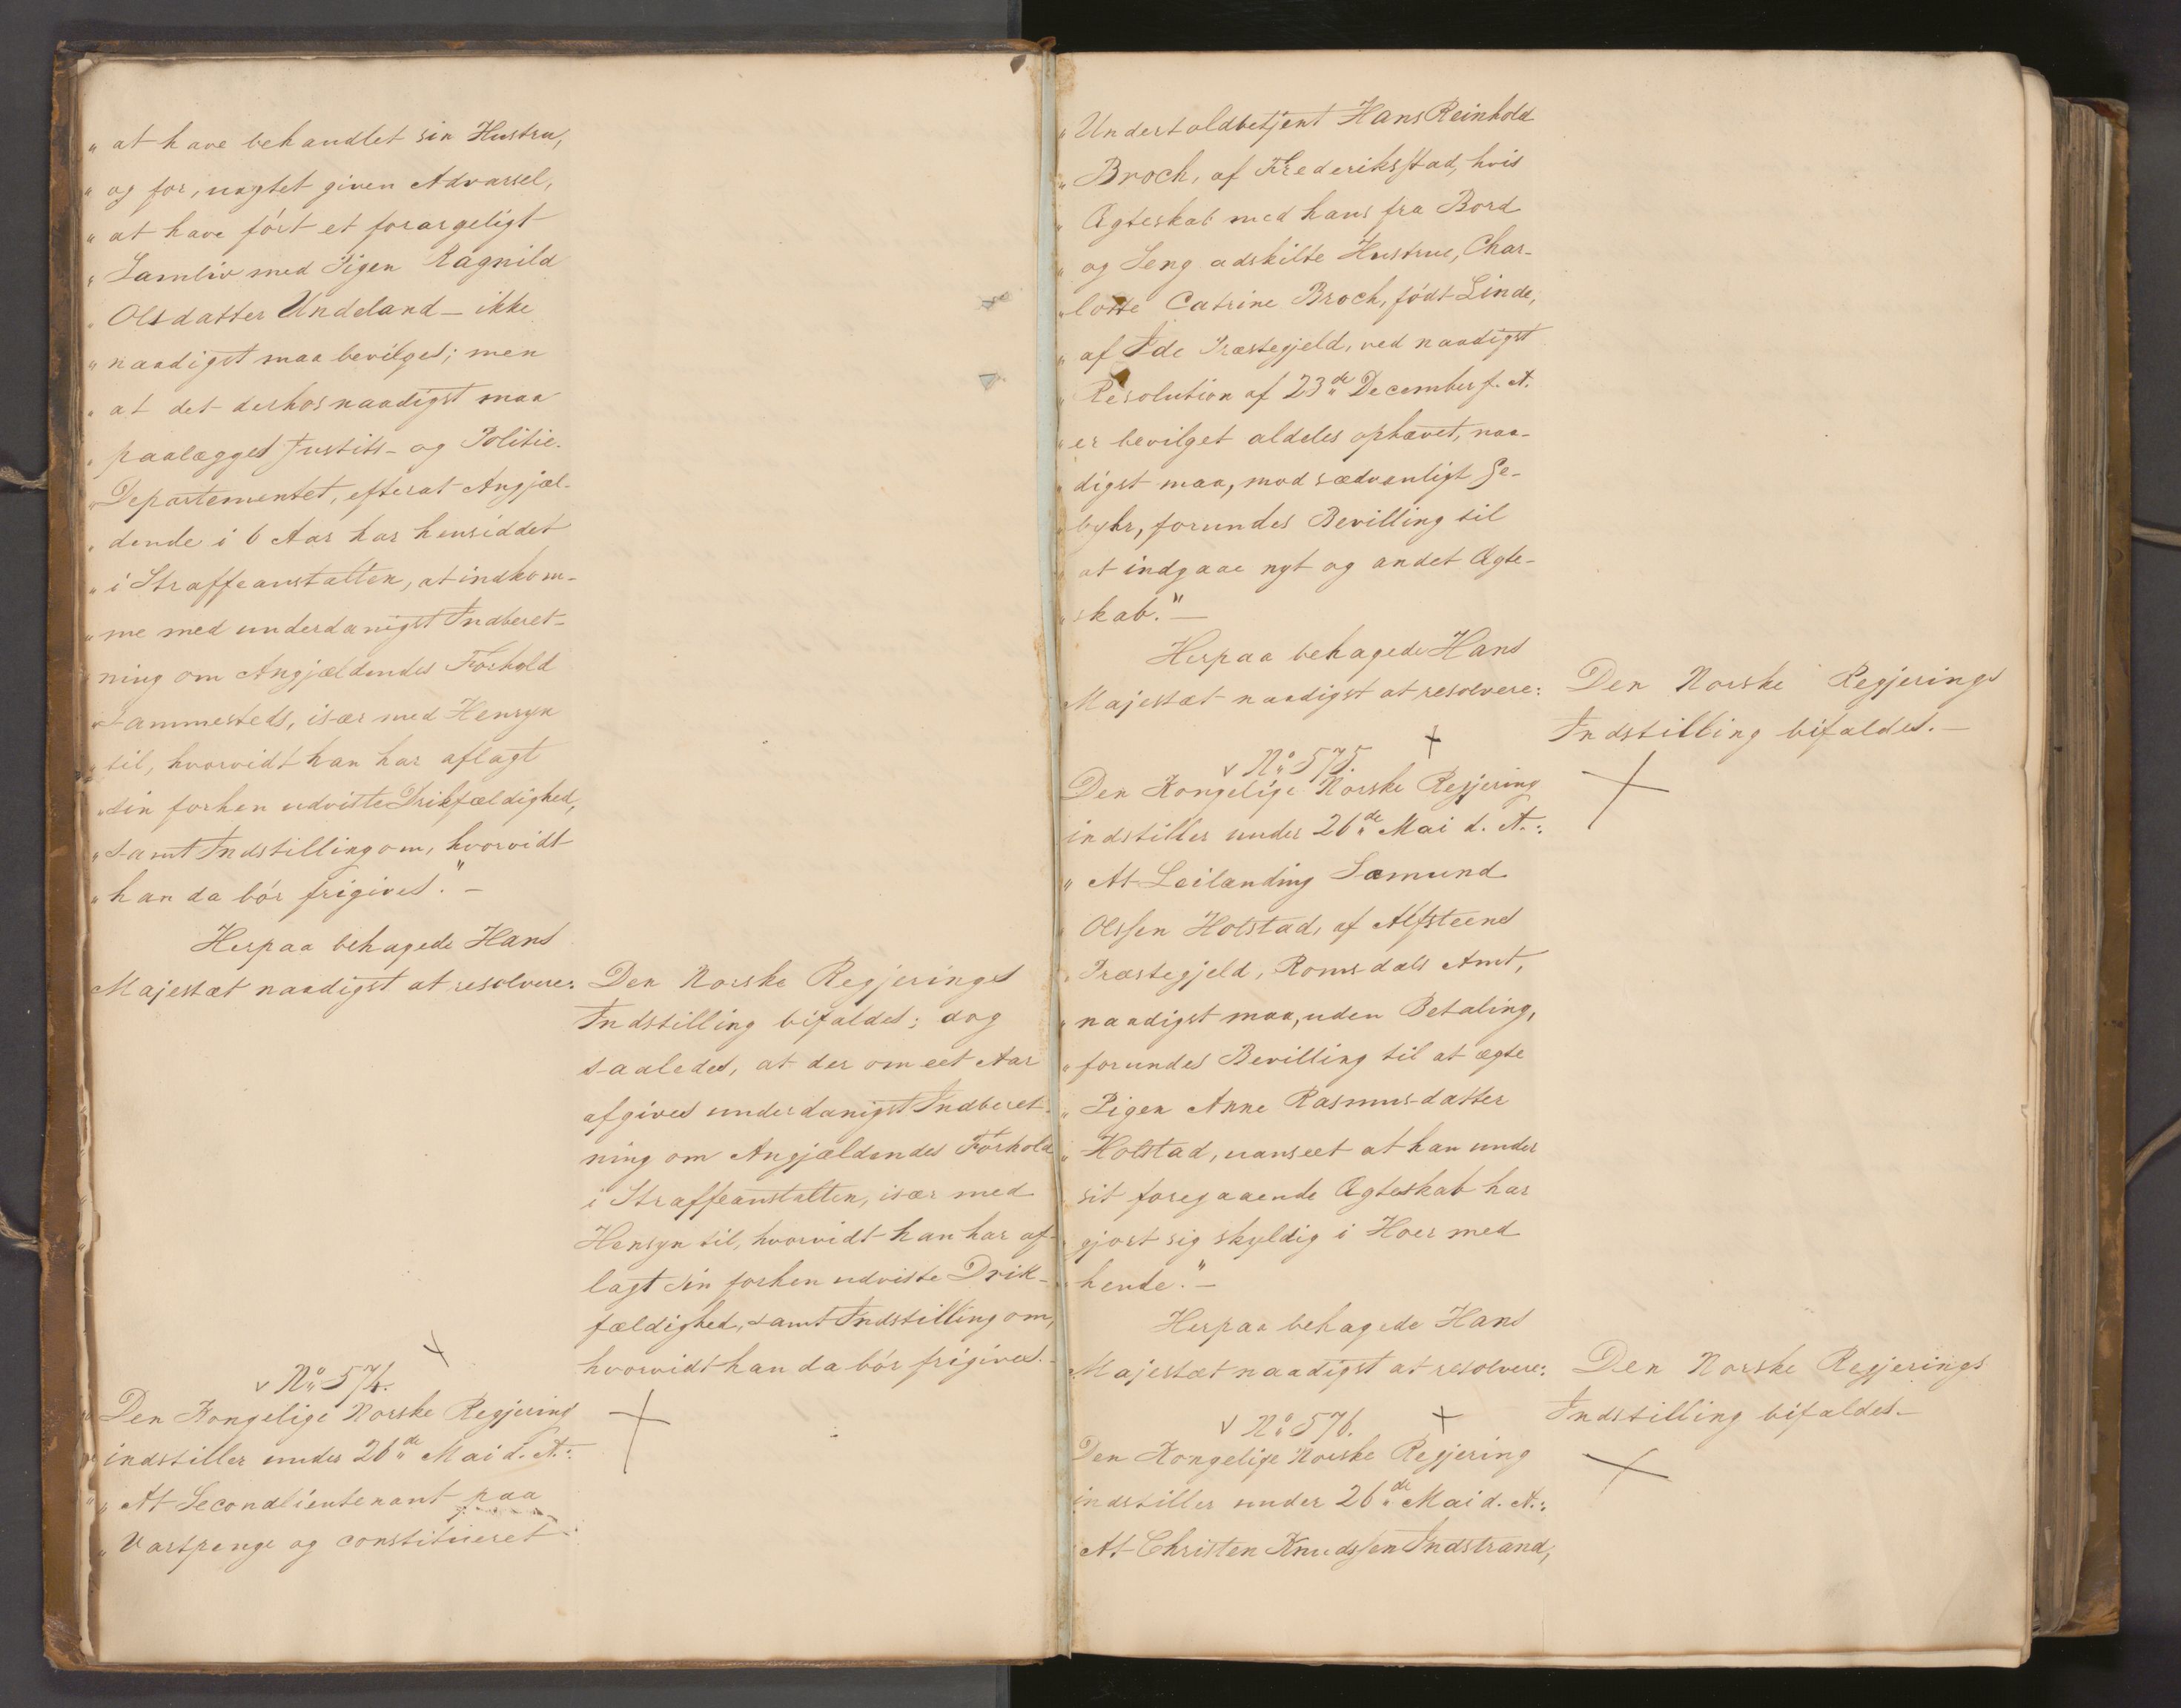 „ at have behandlet sin Hustru,
„ og for, uagtet given Advarsel,
„ at have ført et forargeligt
„ Samliv med Pigen Ragnild
„ Olsdatter Undeland – ikke
„ naadigst maa bevilges; men
„ at det derhos naadigst maa
„ paalægges Justits- og Politie-
„ Departementet, efterat Angjæl-
„ dende i 6 Aar har hensiddet
„ i Straffeanstalten, at indkom-
„ me med underdanigst Indberet-
„ ning om Angjældendes Forhold
„ sammesteds, især med Hensyn
„ til, hvorvidt han har aflagt
„ sin forhen udviste Drikfældighed,
„ samt Indstilling om, hvorvidt
„ han da bør frigives." –
Herpaa behagede Hans
Majestæt naadigst at resolvere:
Den Norske Regjerings
Indstilling bifaldes; dog
saaledes, at der om eet Aar
afgives underdanigst Indberet-
ning om Angjældendes Forhold
i Straffeanstalten, især med
Hensyn til, hvorvidt han har af-
lagt sin forhen udviste Drik-
fældighed, samt Indstilling om,
hvorvidt han da bør frigives. –
No 574.
Den Kongelige Norske Regjering
indstiller under 26de Mai d. A.:
„ At Secondlieutenant paa
„ Vartpenge og constitueret
„ Undertoldbetjent Hans Reinhold
„ Broch, af Frederiksstad, hvis
„ Ægteskab med hans fra Bord
„ og Seng adskilte Hustrue, Char-
„ lotte Catrine Broch, født Linde,
„ af Ide Præstegjeld, ved naadigst
„ Resolution af 23de December f. A.
„ er bevilget aldeles ophævet, naa-
„ digst maa, mod sædvanligt Ge-
„ byhr, forundes Bevilling til
„ at indgaae nyt og andet Ægte-
„ skab." –
Herpaa behagede Hans
Majestæt naadigst at resolvere:
Den Norske Regjerings
Indstilling bifaldes. –
No 575.
Den Kongelige Norske Regjering
indstiller under 26de Mai d. A.:
„ At Leilænding Sæmund
„ Olssen Holstad, af Alfsteens
„ Præstegjeld, Romsdals Amt,
„ naadigst maa, uden Betaling,
„ forundes Bevilling til at ægte
„ Pigen Anne Rasmusdatter
„ Holstad, uanseet at han under
„ sit foregaaende Ægteskab har
„ gjort sig skyldig i Hoer med
„ hende." –
Herpaa behagede Hans
Majestæt naadigst at resolvere:
Den Norske Regjerings
Indstilling bifaldes. –
No 576.
Den Kongelige Norske Regjering
indstiller under 26de Mai d. A.:
„ At Christen Knudssen Indstrand,